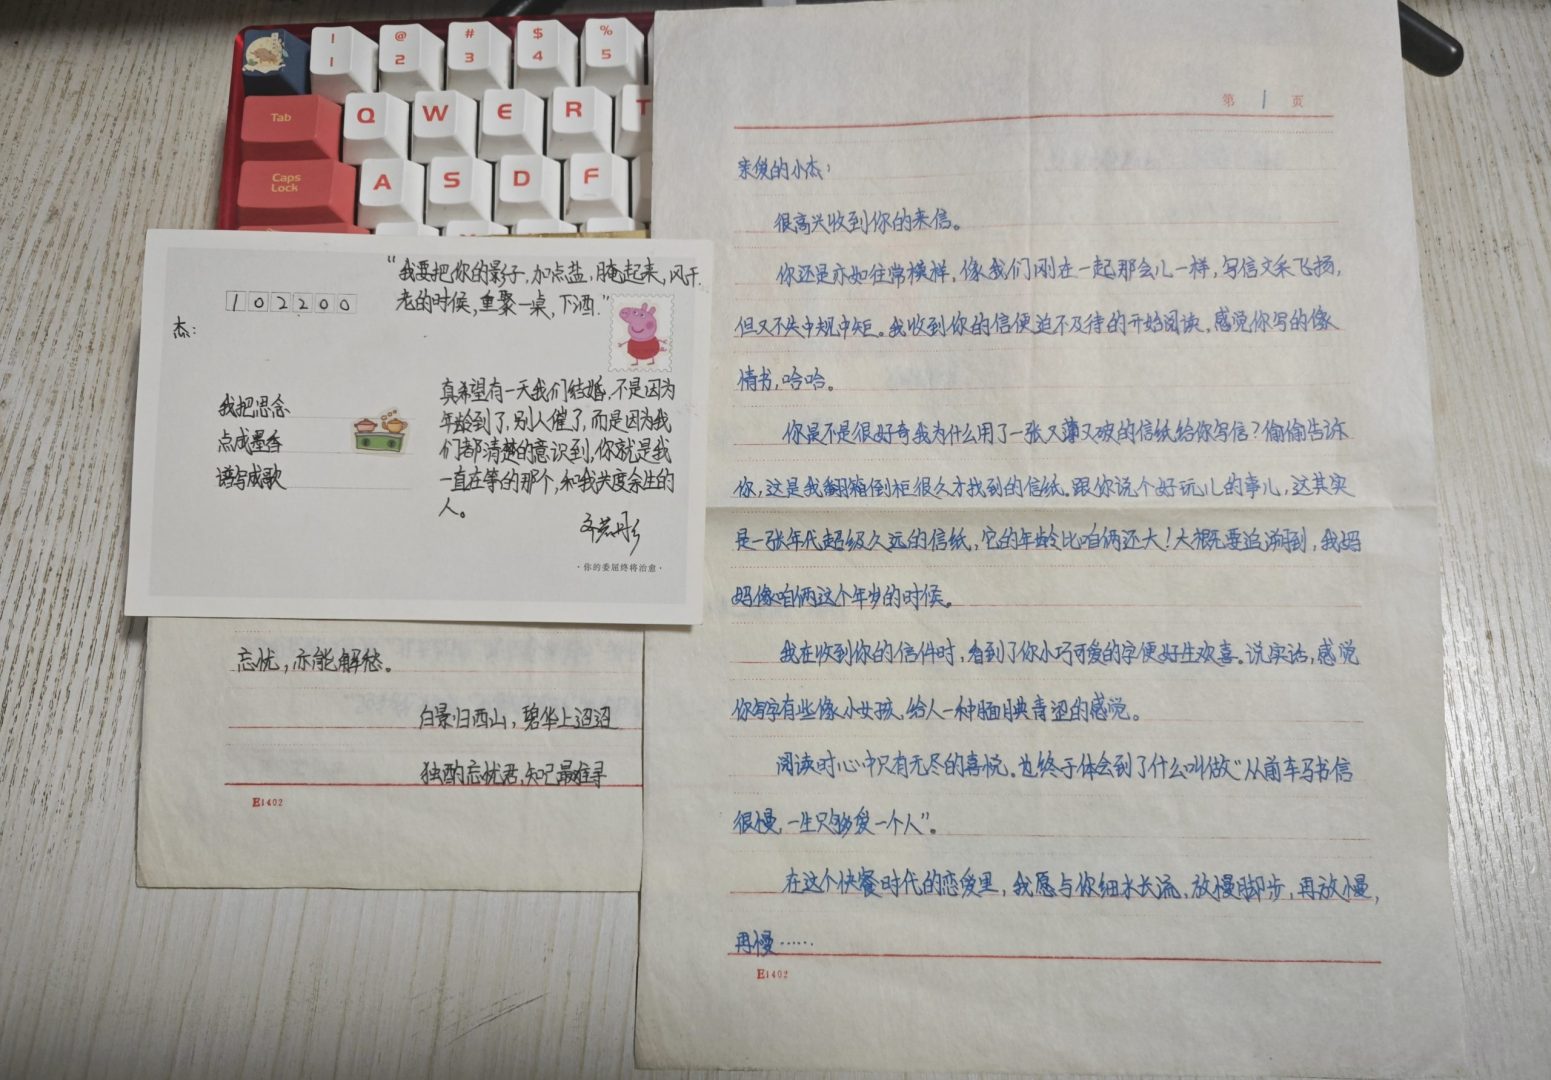 !
1
@
2
#
3
$
4
%
5
Tab
Q
W
E
R
T
Caps
Lock
A
S
D
F
"我要把你的影子，加点盐，腌起来，风干.
老的时候，重聚一桌，下酒."
102200
杰：
我把思念
点成墨香
谱写成歌
真希望有一天我们结婚，不是因为
年龄到了，别人催了，而是因为我
们都清楚的意识到，你就是我
一直在等的那个，和我共度余生的
人。
·你的委屈终将治愈·
忘忧，亦能解愁。
白景归西山，碧华上迢迢
独酌忘忧君，知己最难寻
E1402
第 1 页
亲爱的小杰：
很高兴收到你的来信。
你还是亦如往常模样，像我们刚在一起那会儿一样，写信文采飞扬，
但又不失中规中矩。我收到你的信便迫不及待的开始阅读，感觉你写的像
情书，哈哈。
你是不是很好奇我为什么用了一张又薄又破的信纸给你写信？偷偷告诉
你，这是我翻箱倒柜很久才找到的信纸。跟你说个好玩儿的事儿，这其实
是一张年代超级久远的信纸，它的年龄比咱俩还大！大概要追溯到，我妈
妈像咱俩这个年岁的时候。
我在收到你的信件时，看到了你小巧可爱的字便好生欢喜。说实话，感觉
你写字有些像小女孩，给人一种腼腆青涩的感觉。
阅读时心中只有无尽的喜悦。也终于体会到了什么叫做"从前车马书信
很慢，一生只够爱一个人"。
在这个快餐时代的恋爱里，我愿与你细水长流，放慢脚步，再放慢，
再慢……
E1402